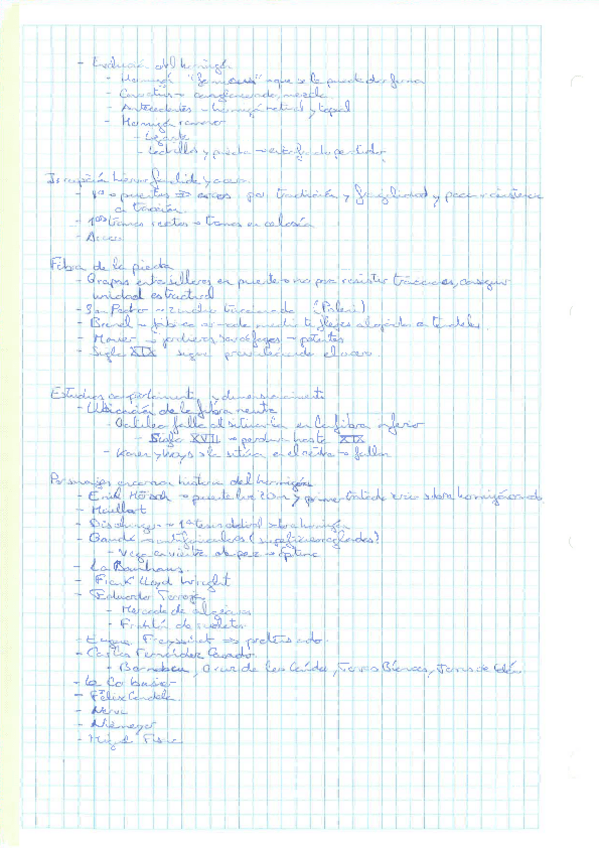 - Evolución del hormigón
- Hormigón "formaceo" → que se le puede dar forma
- → conglomerado, mezcla
- Antecedentes → hormigón natural y tapial
- Hormigón romano
- Ladrillos y piedra →
Irrupción hierro fundido y acero
- 1os puentes por tradición y fragilidad y poca resistencia
a tracción.
- 1os tramos rectos → tramos en celosía
- Acero
Fibra de la piedra
- Grapas entre sillares en puente → no para resistir tracciones, conseguir
unidad estructural
- San Pedro → zuncho traccionado (Poleni)
- Brunel → fábrica armada mediante flejes alojados en tendeles.
- Monier → jardineras → patentes
- Siglo XIX sigue prevaleciendo el acero.
Estudios comportamiento y dimensionamiento
- Ubicación de la fibra neutra
- Galileo falla al situarla en la fibra inferior
- Siglo XVII → perdura hasta XIX
- la sitúa en el centro → falla
Personajes en historia del hormigón
- Mörsch → puente luz 70 m y primer tratado serio sobre hormigón armado
- Maillart
- Dischinger → 1ª tesis doctoral sobre hormigón
- Gaudí → (superficies regladas)
- Viga en vientre de pez → óptima
- La Bauhaus.
- Frank Lloyd Wright
- Eduardo Torroja
- Mercado de Algeciras
- Frontón de recoletos
- Eugene Freyssinet → pretensado.
- Carlos Fernández Casado
- Bernabeu, Cruz de los Caídos, Torres Blancas, Torres de Colón
- Le Corbusier
- Félix Candela
- Nervi
- Niemeyer
- Miguel Fisac